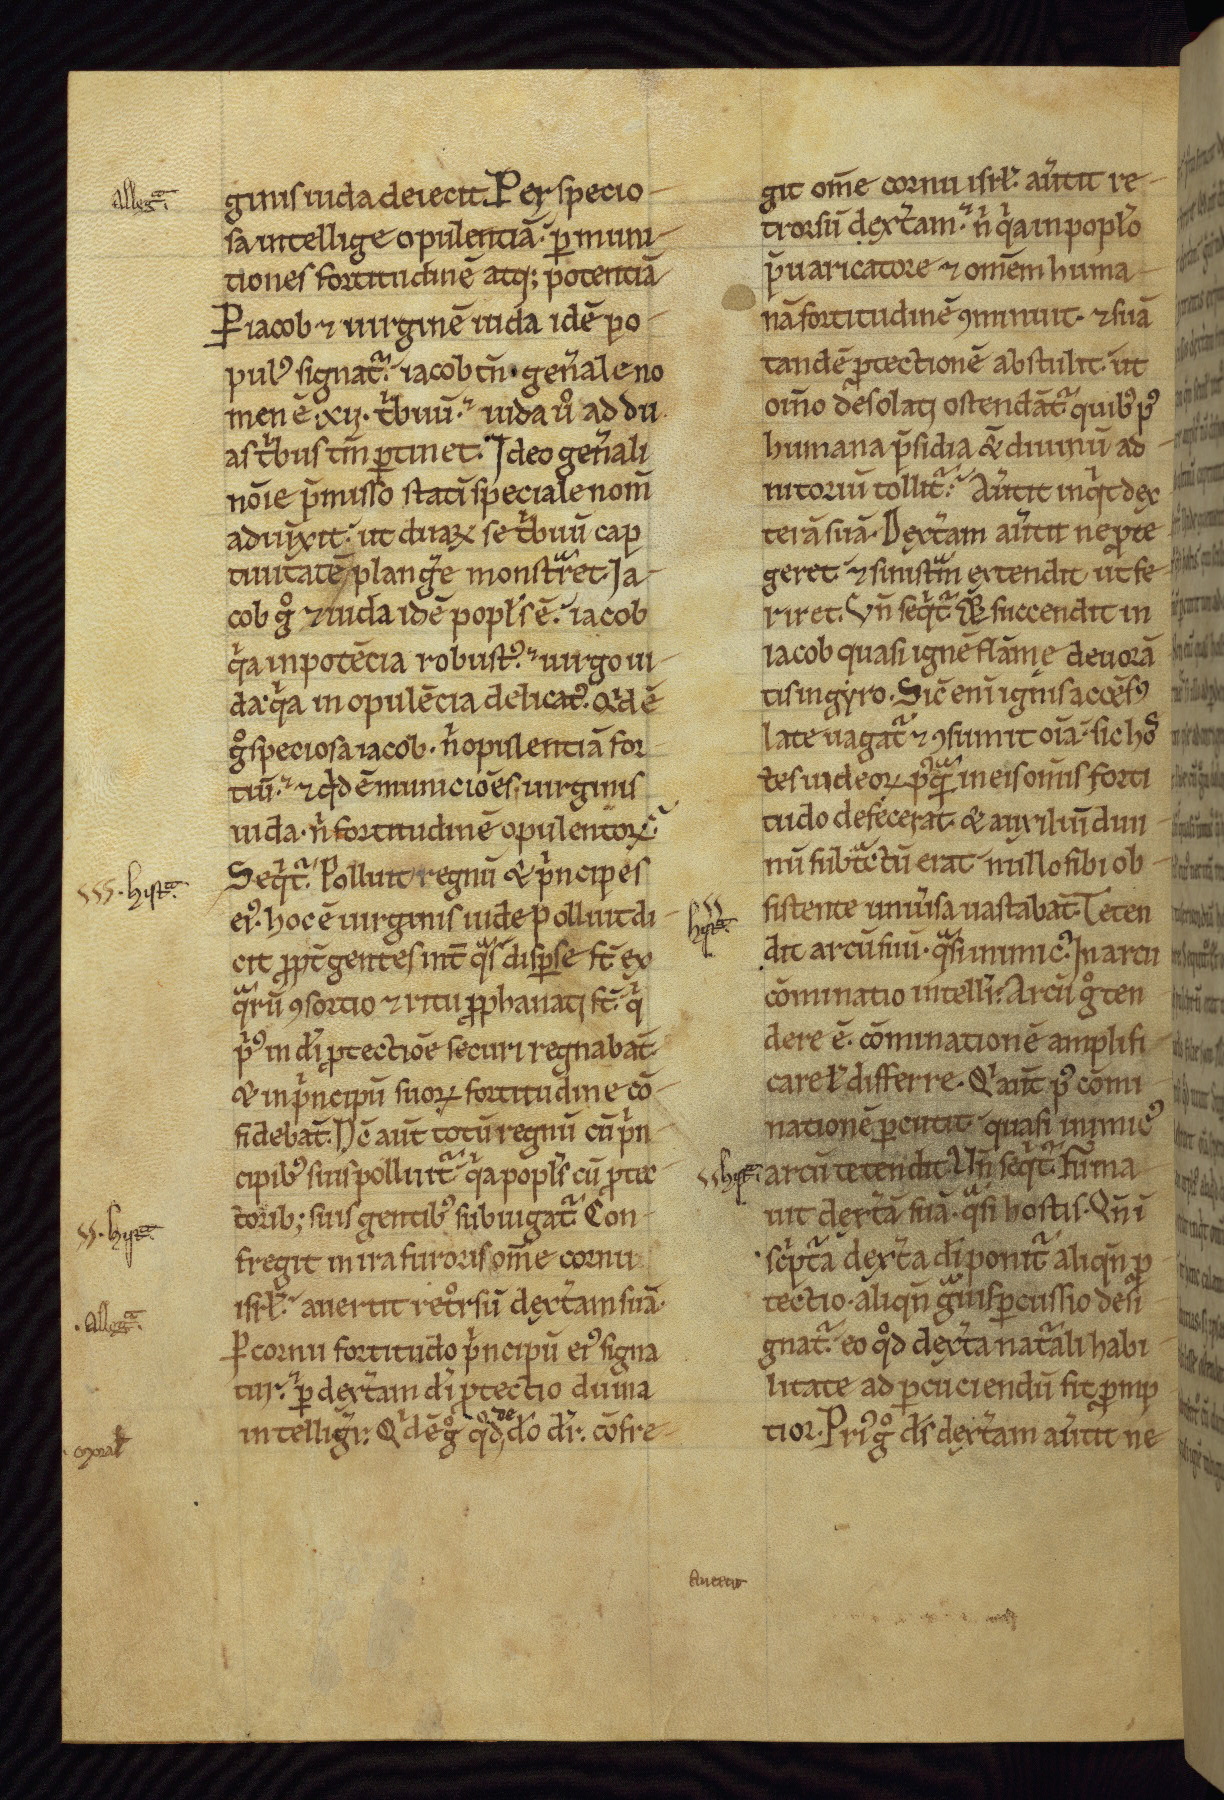 Alleg̃.
ginis iuda deiecit. Per specio-
sa intellige opulentiā. ꝑ muni-
tiones fortitudinē atq; potentiā
P iacob ⁊ uirginē iuda idē po-
pulꝰ signat᷑. iacob tn̄. gen̄ale no
men ē .xij. t̾buū. iuda ū ad du
as t̾bus tm̄ ꝑtinet. Ideo gen̄ali
noīe p̄misso statī speciale nom̄
aduixit. ut duaꝝ se t̾buū cap
tiuitatē plang̾e monstr̃et. Ia-
cob gͦ ⁊ iuda idē popl̄s ē. iacob
q̾a in potēcia robustꝰ. uirgo iu-
da q̾a in opulēcia delicatꝰ. Qd̾ ē
gͦ speciosa iacob. n̾ opulentiā for-
tiū. ⁊ qd̾ ē municiōes uirginis
iuda. n̾ fortitudinē opulentoꝝ.
Seq̾t᷑. Polluit regnū & p̾ncipes
SSS. hist̃.
eiꝰ. hoc ē uirginis iude polluit di-
cit ꝓpt̄ gentes int̄ qᵃs disꝑse st̄ ex
qᵃrū ꝯsortio ⁊ ritu ꝓphanati st̄. q̾
p̾ꝰ in dī ꝓtectiōe securi regnabāt.
& in p̾ncipū suoꝝ fortitudine cō-
fidebāt. Dc̄ aūt totū regnū cū p̾n-
cipibꝰ suis polluit᷑ q̾a popl̄s cū ꝓtec
torib; suis gentibꝰ subiugat᷑. Con-
SS. hist̃.
fregit in ira furoris om̄e cornu
isrl̄. auertit ret̊rsū dext̾am suā.
.Alleg̃.
P cornu fortitudo p̾ncipū eiꝰ signa
tur. ꝑ dext̾am dī ꝓtectio diuina
intelligr̄. Qd̾ ē gͦ qd̾ de dō dr̄. cōfre-
.moral̄
git om̄e cornu isrl̄. au̾tit re-
trorsū dext̾am. n̾ q̾a in popl̄o
p̄uaricatore ⁊ omēm huma-
nā fortitudinē ꝯminuit. ⁊ suā
tandē ꝓtectionē abstulit. ut
om̄o desolati ostendāt᷑ quibꝰ pꝰ
humana p̄sidia & diuinū ad-
iutoriū tollit᷑. Au̾tit inq̾t dex
terā suā. Dext̾am au̾tit ne ꝓte
geret. ⁊ sinist̃m extendit ut fe-
riret. Vn̄ seq̾t᷑. Et succendit in
iacob quasi ignē flāme deuorā
tis in gyro. Sic̄ enī ignis accēsꝰ
late uagat᷑ ⁊ ꝯsumit oīā. sic hos
tes iudeoꝝ pꝰqᵃ in eis om̄is forti
tudo defecerat. & auxiliū diui
nū subt̃ctū erat nullo sibi ob-
sistente uniu̾sa uastabāt. Teten
SS
hist̃.
dit arcū suū. qᵃsi inimicꝰ. In arcu
cōminatio intelligr̄. Arcū gͦ ten
dere ē. cōminationē amplifi
care ut̄ differre. Q̾ aūt pꝰ cōmi-
nationē ꝑcutit. quasi inimicꝰ
SS hist̃.
arcū tetendit. Vn̄ seq̾t᷑. Firma
uit dext̾ā suā. qᵃsi hostis. Qn̄ ī
sc̾pt̃a dext̾a dī ponit᷑ aliqn̄ ꝓ
tectio. aliqn̄ gᵃuis ꝑcussio desi
gnat᷑. eo qd̊ dext̾a nat̃ali habi
litate ad ꝑcuciendū sit ꝓmp
tior. Priꝰ gͦ ds̄ dext̾am au̾tit ne
Auertit